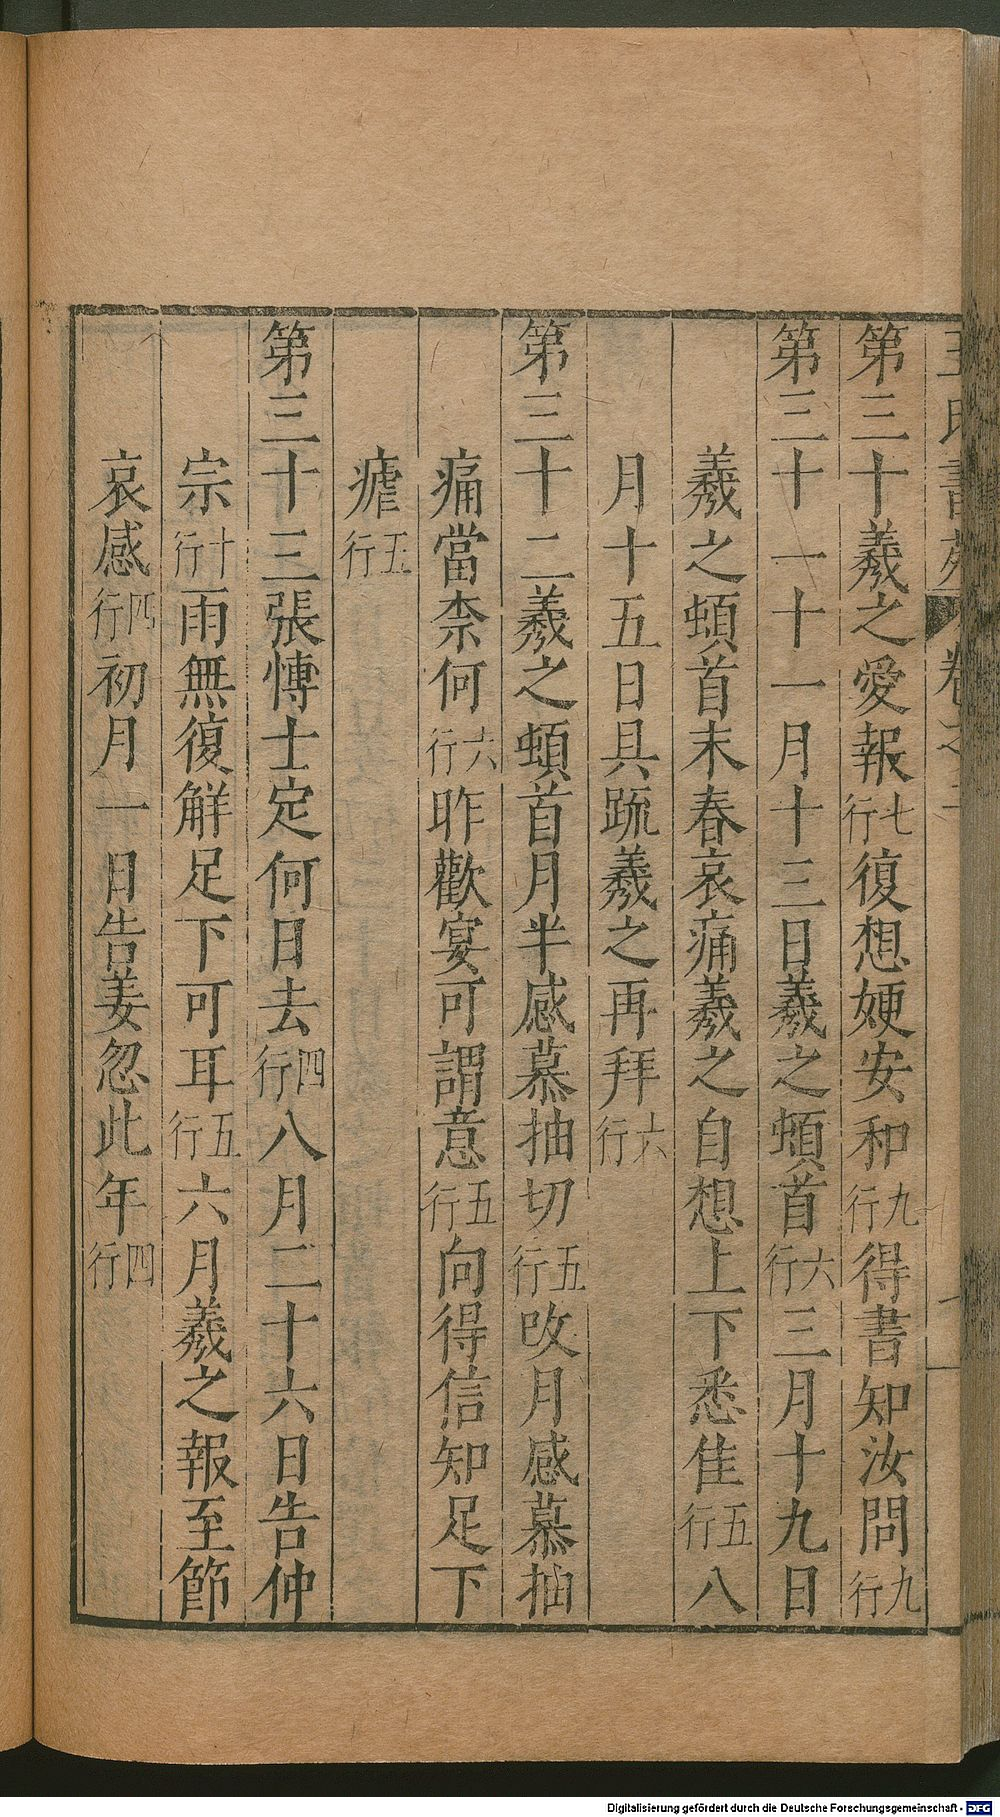 王氏書苑 卷之二
第三十羲之愛報七行復想㛐安和九行得書知汝問九行
第三十一十一月十三日羲之頓首六行三月十九日
羲之頓首末春哀痛羲之自想上下悉佳五行八
月十五日具䟽羲之再拜六行
第三十二羲之頓首月半感慕抽切五行改月感慕抽
痛當柰何六行昨歡宴可謂意五行向得信知足下
瘧五行
第三十三張慱士定何日去四行八月二十六日告仲
宗十行雨無復觧足下可耳五行六月羲之報至節
哀感四行初月一日告姜忽此年四行
Digitalisierung gefördert durch die Deutsche Forschungsgemeinschaft - DFG